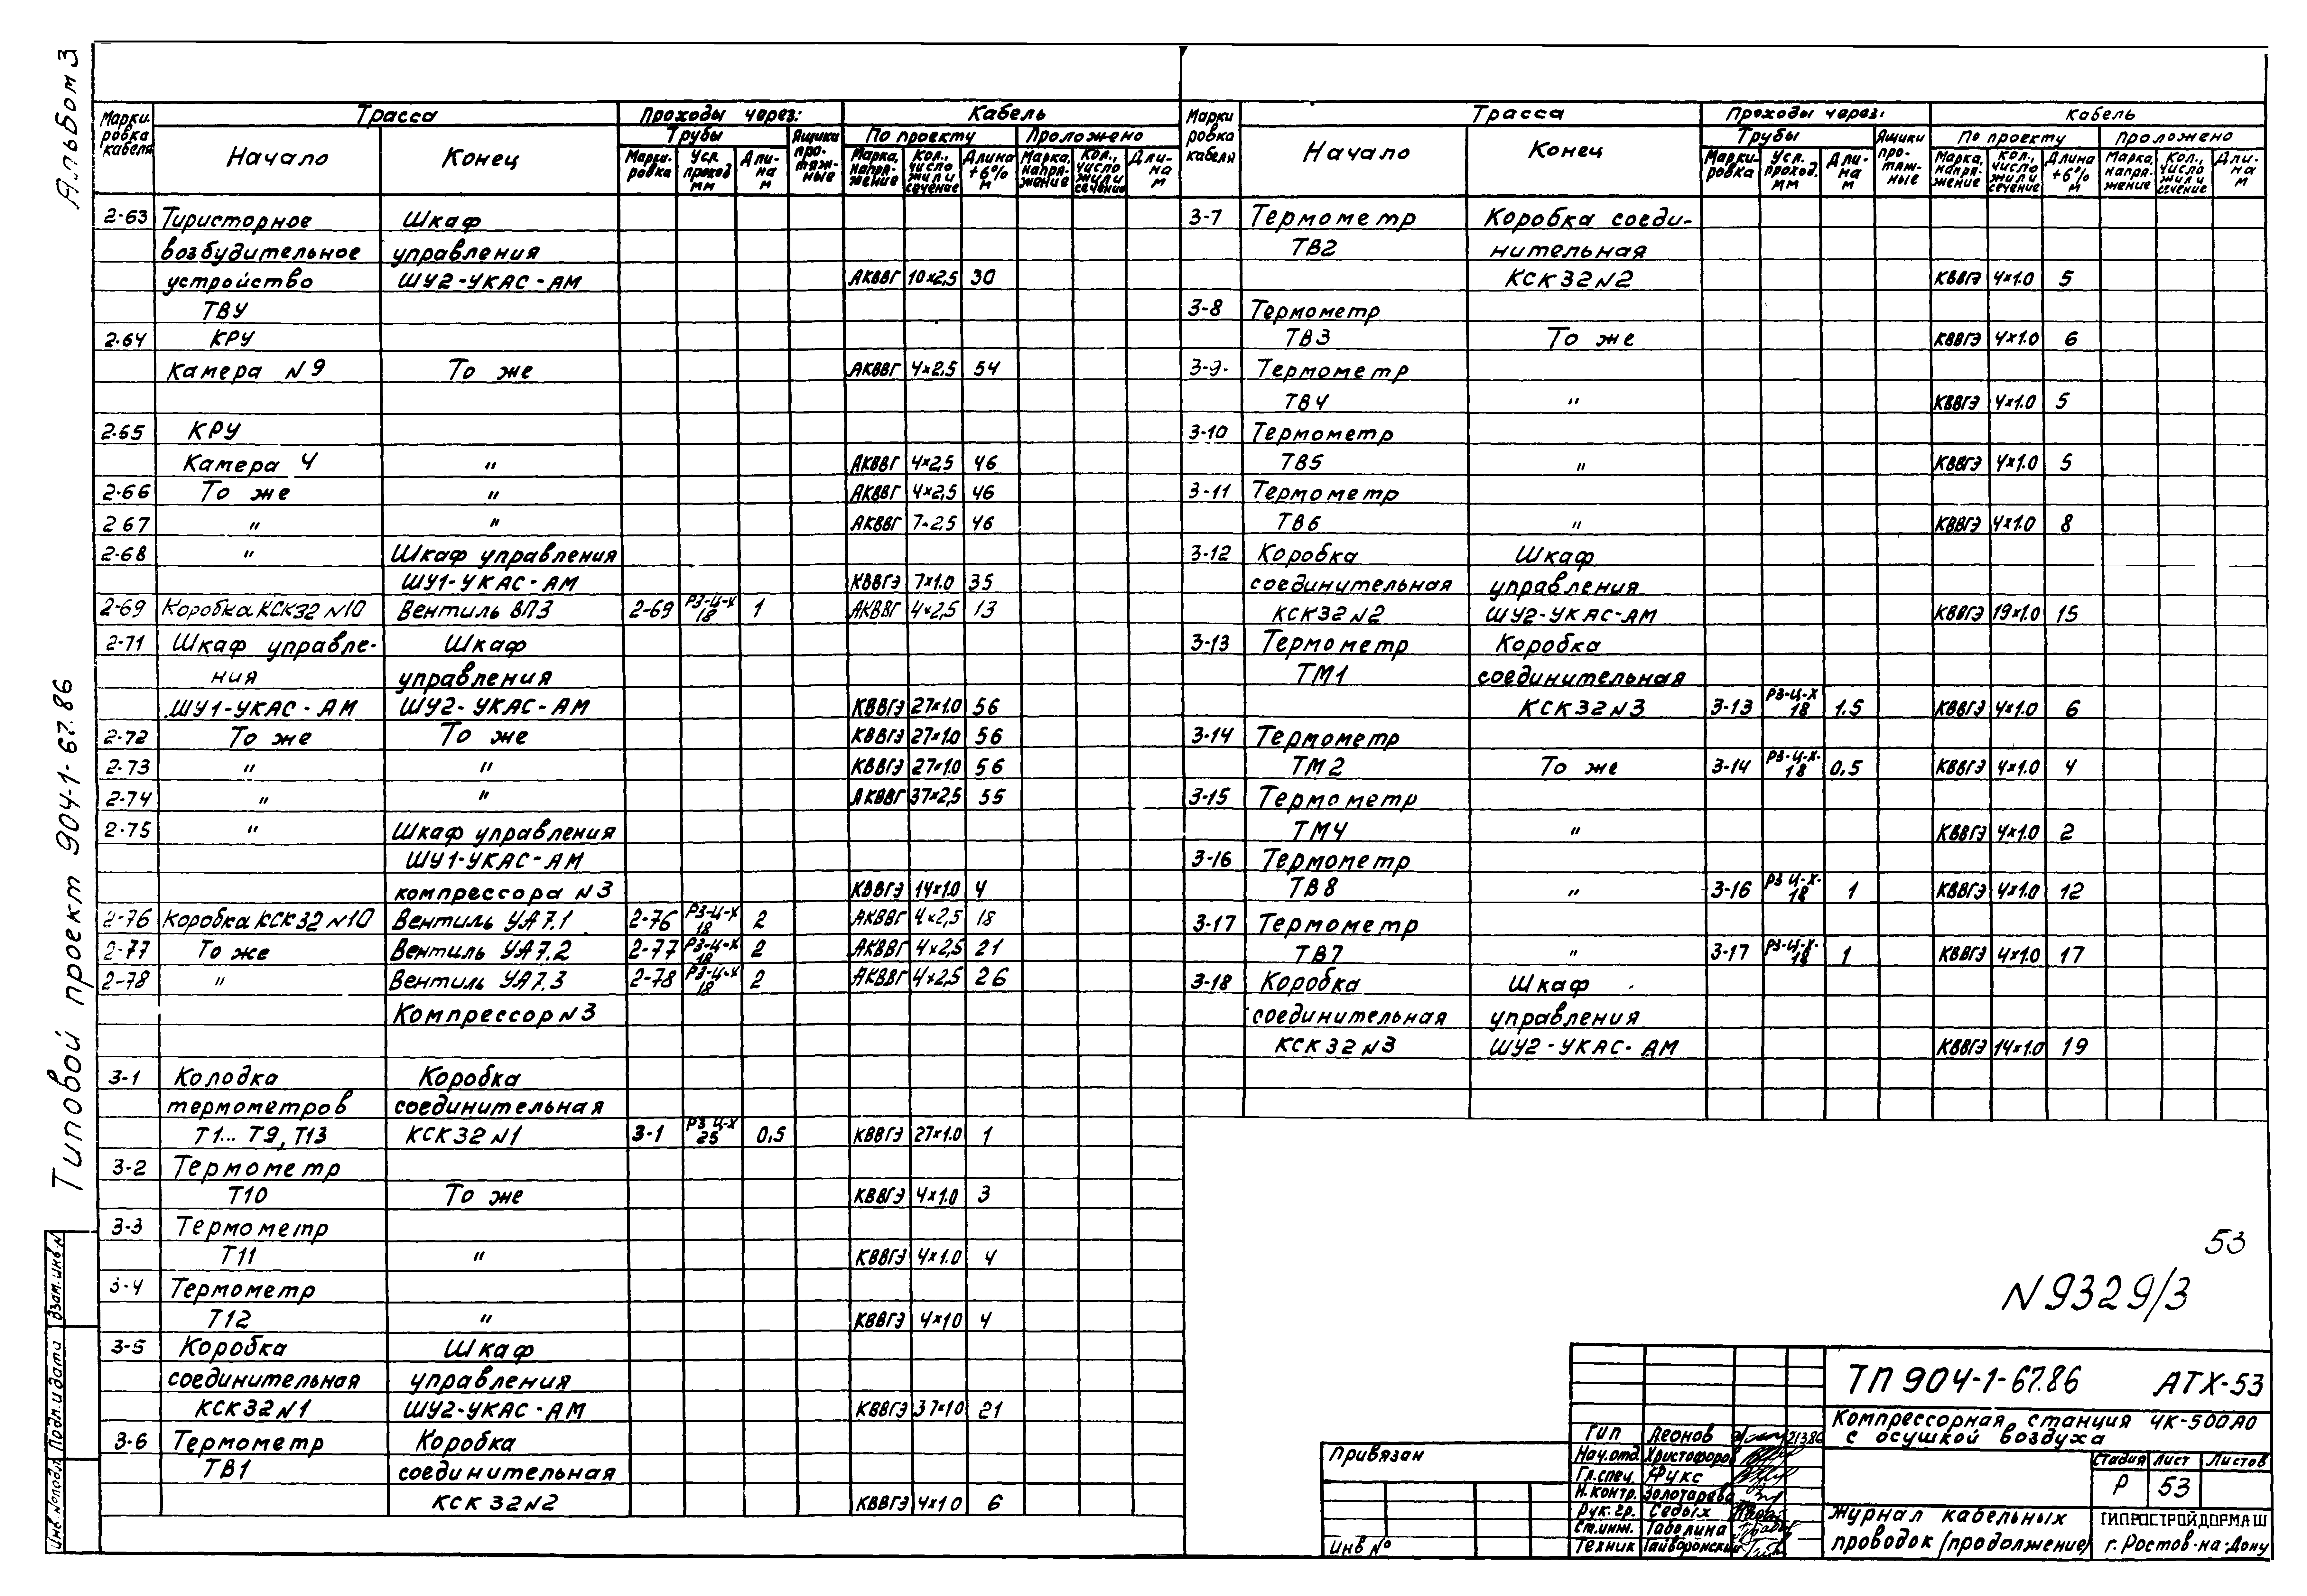 Альбом 3
Типовой проект 904-1-67.86
Взам.инв.N
Подп.и дата
Инв.Nоподл.
Марки-ровка кабеля | Трасса | Проходы через: | Кабель
Начало | Конец | Трубы | Ящики про-тяж-ные | По проекту | Проложено
Марки-ровка | Усл. проход мм | Дли-на м | Марка, напря-жение | Кол., число жил и сечение | Длина +6% м | Марка, напря-жение | Кол., число жил и сечение | Дли-на м
2-63 Тиристорное Шкаф
возбудительное управления
устройство ШУ2-УКАС-АМ АКВВГ 10×2,5 30
ТВУ
2-64 КРУ
Камера N9 То же АКВВГ 4×2,5 54
2-65 КРУ
Камера 4 " АКВВГ 4×2,5 46
2-66 То же " АКВВГ 4×2,5 46
2 67 " " АКВВГ 7×2,5 46
2-68 " Шкаф управления
ШУ1-УКАС-АМ КВВГЭ 7×1.0 35
2-69 Коробка КСК32 N10 Вентиль ВП3 2-69 РЗ-Ц-Х 18 1 АКВВГ 4×2,5 13
2-71 Шкаф управле- Шкаф
ния управления
ШУ1-УКАС-АМ ШУ2-УКАС-АМ КВВГЭ 27×1.0 56
2-72 То же То же КВВГЭ 27×1.0 56
2-73 " " КВВГЭ 27×1.0 56
2-74 " " АКВВГ 37×2,5 55
2-75 " Шкаф управления
ШУ1-УКАС-АМ
компрессора N3 КВВГЭ 14×1.0 4
2-76 Коробка КСК32 N10 Вентиль УА7.1 2-76 РЗ-Ц-Х 18 2 АКВВГ 4×2,5 18
2-77 То же Вентиль УА7.2 2-77 РЗ-Ц-Х 18 2 АКВВГ 4×2,5 21
2-78 " Вентиль УА7.3 2-78 РЗ-Ц-Х 18 2 АКВВГ 4×2,5 26
Компрессор N3
3-1 Колодка Коробка
термометров соединительная
Т1... Т9, Т13 КСК32 N1 3-1 РЗ Ц-Х 25 0,5 КВВГЭ 27×1.0 1
3-2 Термометр
Т10 То же КВВГЭ 4×1.0 3
3-3 Термометр
Т11 " КВВГЭ 4×1.0 4
3-4 Термометр
Т12 " КВВГЭ 4×10 4
3-5 Коробка Шкаф
соединительная управления
КСК32 N1 ШУ2-УКАС-АМ КВВГЭ 37×10 21
3-6 Термометр Коробка
ТВ1 соединительная
КСК 32 N2 КВВГЭ 4×10 6
Марки ровка кабеля | Трасса | Проходы через: | Кабель
Начало | Конец | Трубы | Ящики про-тяж-ные | По проекту | Проложено
Марки-ровка | Усл. проход. мм | Дли-на м | Марка, напря-жение | Кол., число жил и сечение | Длина +6% м | Марка, напря-жение | Кол., число жил и сечение | Дли-на м
3-7 Термометр Коробка соеди-
ТВ2 нительная
КСК 32 N2 КВВГЭ 4×1.0 5
3-8 Термометр
ТВ3 То же КВВГЭ 4×1.0 6
3-9 Термометр
ТВ4 " КВВГЭ 4×1.0 5
3-10 Термометр
ТВ5 " КВВГЭ 4×1.0 5
3-11 Термометр
ТВ6 " КВВГЭ 4×1.0 8
3-12 Коробка Шкаф
соединительная управления
КСК32 N2 ШУ2-УКАС-АМ КВВГЭ 19×1.0 15
3-13 Термометр Коробка
ТМ1 соединительная
КСК 32 N3 3-13 РЗ-Ц-Х 18 1.5 КВВГЭ 4×1.0 6
3-14 Термометр
ТМ2 То же 3-14 РЗ-Ц-Х 18 0,5 КВВГЭ 4×1.0 4
3-15 Термометр
ТМ4 " КВВГЭ 4×1.0 2
3-16 Термометр
ТВ8 " 3-16 РЗ Ц-Х 18 1 КВВГЭ 4×1.0 12
3-17 Термометр
ТВ7 " 3-17 РЗ-Ц-Х 18 1 КВВГЭ 4×1.0 17
3-18 Коробка Шкаф
соединительная управления
КСК 32 N3 ШУ2-УКАС-АМ КВВГЭ 14×1.0 19
53
N9329/3
ТП 904-1-67.86 АТХ-53
Компрессорная станция 4К-500А0
с осушкой воздуха
Привязан
Инв No
ГИП Леонов
Нач.отд. Христофоров
Гл.спец. Фукс
Н.контр. Золотарева
Рук.гр. Седых
Ст.инж. Таболина
Техник Гайворонский
Стадия Лист Листов
Р 53
Журнал кабельных
проводок (продолжение)
ГИПРОСТРОЙДОРМАШ
г. Ростов-на-Дону